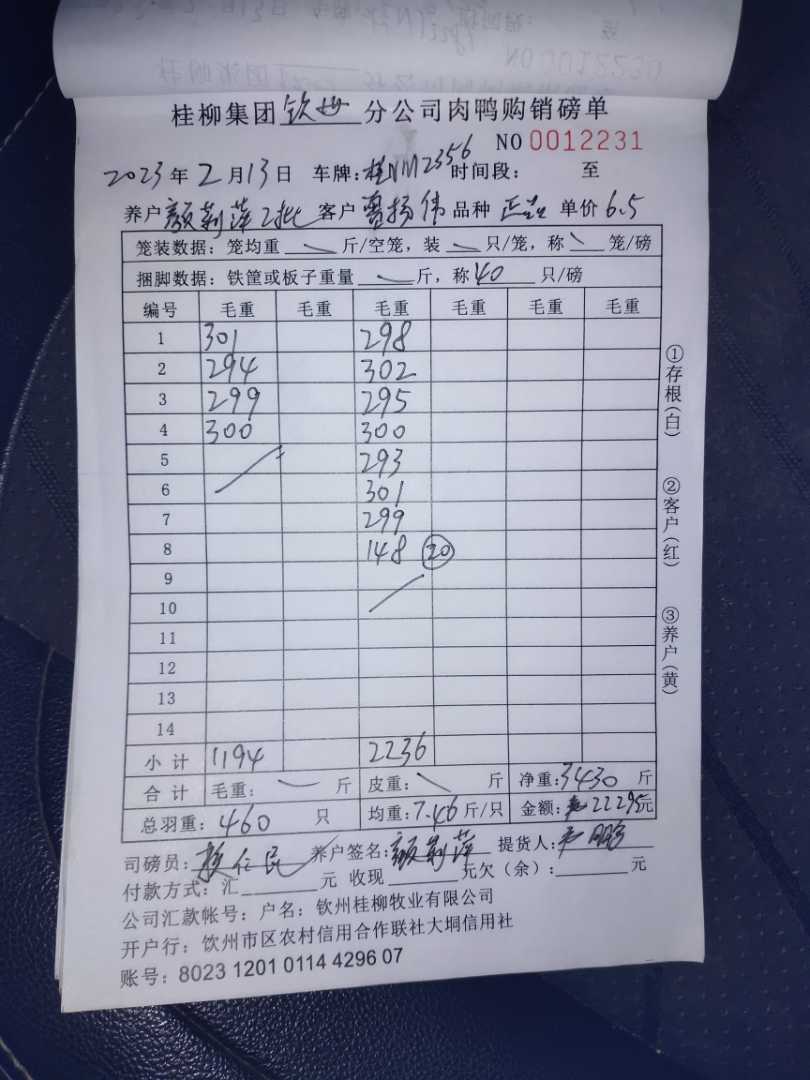 NO 0012230
桂柳集团钦州分公司肉鸭购销磅单
NO 0012231
2023年2月13日 车牌:桂NM2356 时间段: 至
养户 颜莉萍2批 客户 扬伟 品种 单价 6.5
笼装数据: 笼均重 斤/空笼, 装 只/笼, 称 笼/磅
捆脚数据: 铁筐或板子重量 斤, 称 40 只/磅
编号 毛重 毛重 毛重 毛重 毛重 毛重
1 301 298
2 294 302
3 299 295
4 300 300
5 293
6 301
7 299
8 148 20
9
10
11
12
13
14
小计 1194 2236
合计 毛重: 斤 皮重: 斤 净重: 3430 斤
总羽重: 460 只 均重: 7.46 斤/只 金额: 22295元
司磅员: 仁民 养户签名: 颜莉萍 提货人:
付款方式: 汇 元 收现 元欠(余): 元
公司汇款帐号: 户名: 钦州桂柳牧业有限公司
开户行: 钦州市区农村信用合作联社大垌信用社
账号: 8023 1201 0114 4296 07
①存根(白)
②客户(红)
③养户(黄)